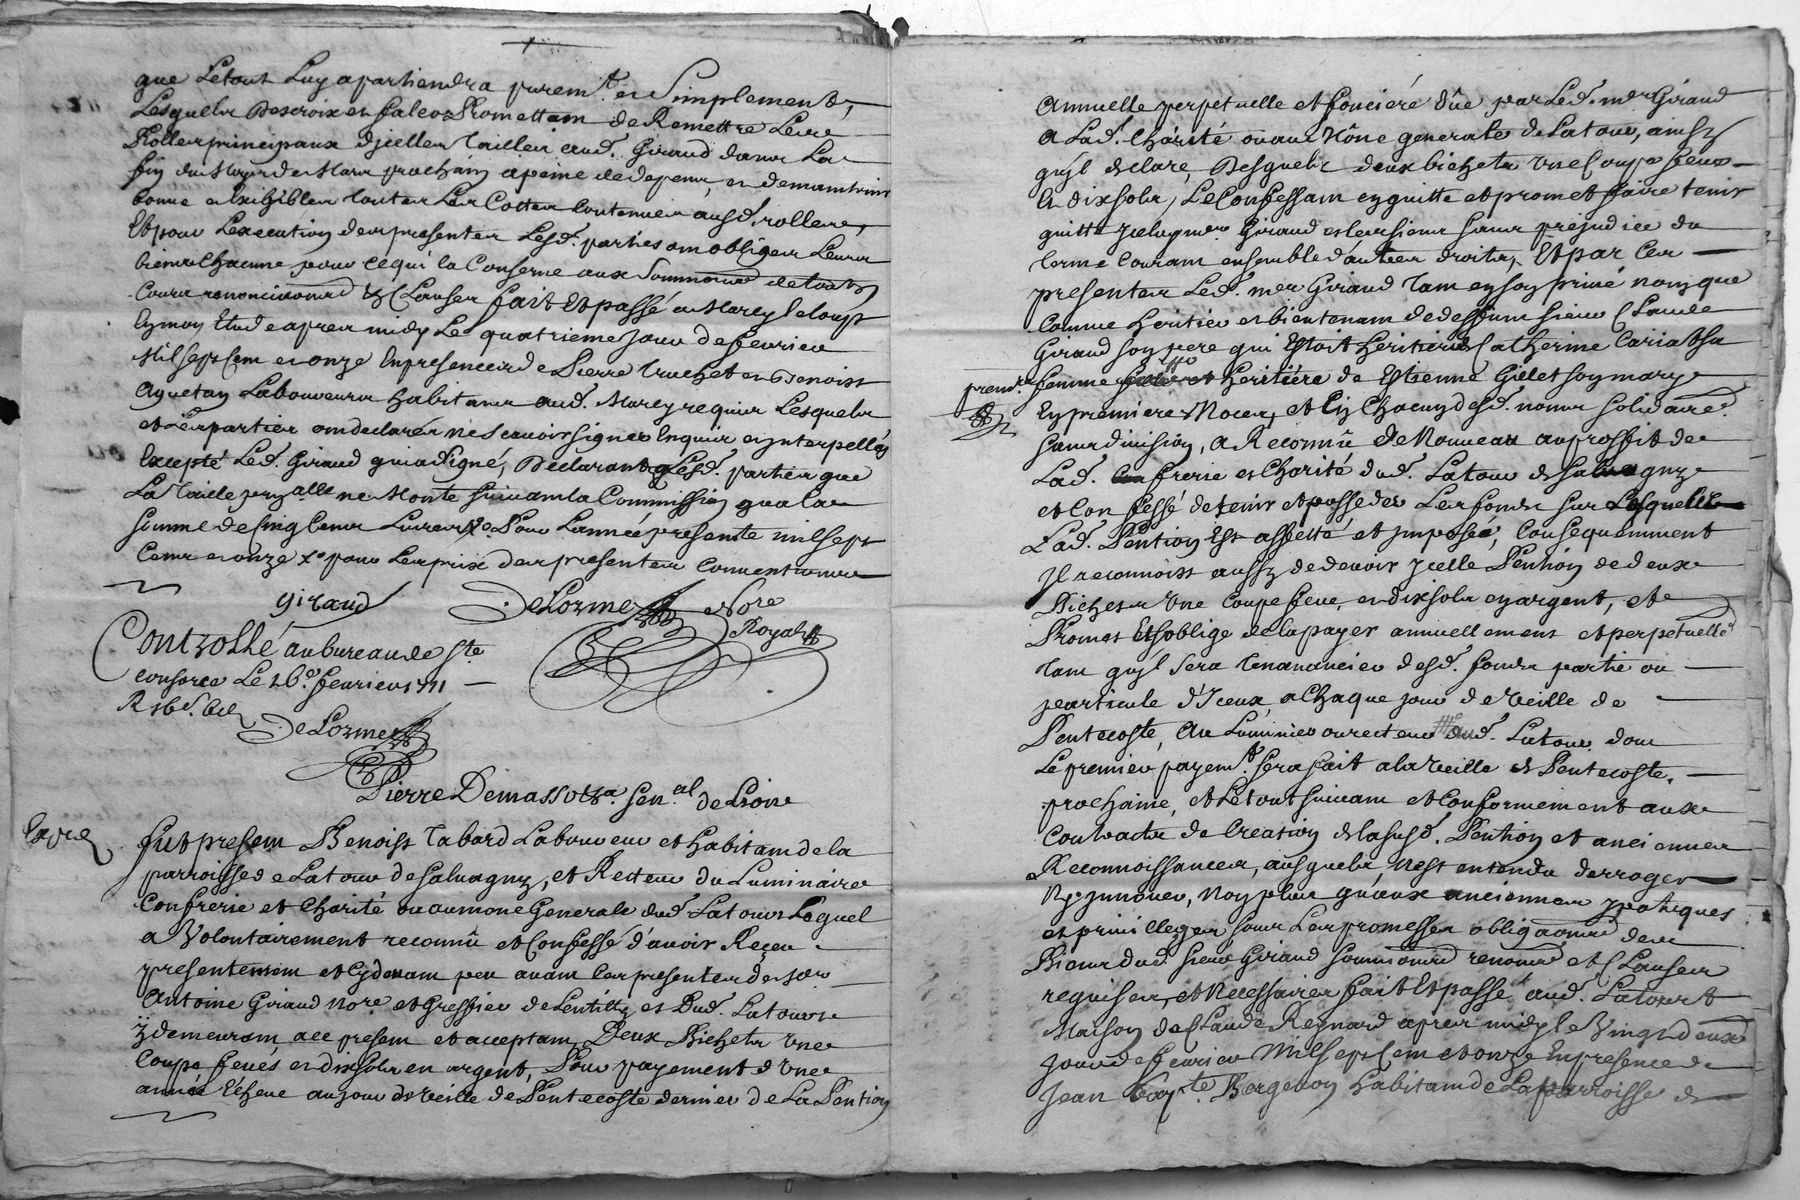 que Letout Luy apartiendra purem.t et Simplement,
Lesquels Descroix et faleo Promettam de Remettre Leur
Rolles principaux djcelles Tailles aud. Giraud dans La
fin du Moys de Mars prochain apeine de depens, et demaintenir
bonne et Exigibles toutes Les Cottes Contenues ausd. rolles,
Et pour Lexecution des presentes Lesd. parties om obliges Leurs
biens Chacune pour cequi la Conserne aux Soummons de toutes
Cours renonciaons & Clauses fait Et passé a Marcy le loup
En mon Etude apres midy Le quatrieme Jour de fevrier
Mil sept cem et onze En presence de Pierre Truchet et Benoist
Laboureurs habitans aud. Marcy requis Lesquels
et Les parties om declarés ne Scavoir signer Enquis et ynterpellés
Excepté Led. Giraud qui a Signé, Declarant Lesd. parties que
La Taille Royalle ne Monte suivam la Commission qua la
somme de Cinq Cens Livres Pour Lannée presente mil sept
Cens et onze pour Les prix des presentes Conventions
Giraud DeLorme Nore
Royal
Controllé au bureau de Ste
consorce Le 26.e fevrier 1711
R
DeLorme
Pierre Demasso gen.al de Lion
Expe
fut presem Benoist Tabard Laboureur et habitam de la
parroisse de Latour de Salvagny, et Recteur du Luminaire
Confrerie et Charité ou aumone Generale dud. Latour Lequel
a Volontairement reconnû et Confessé d'avoir Reçeu
presentemem et Cy devam peu avam Les presentes de Me
Antoine Giraud Nore et Greffier de Lentilly et Dud. Latour
y demeuram, ace presem et acceptam Deux Bichets Une
Coupe feves et dix sols en argent, Pour payement d'Une
année Echeue au jour de Veille de Pentecoste dernier de La Pention
Annuelle perpetuelle et fonciere dûe par Led. mer Giraud
A Lad. Charité ou aumône generale de Latour, ainsy
quil declare, Desquels deux bichets Une Coupe feves
Et dix sols, Le Confessam en quitte et promet faire tenir
quitte Jceluy mer Giraud et les siens sans prejudice du
terme Couram ensemble d'autres droits, Et par Ces
presentes Led. mer Giraud tam en son privé nom que
Comme heritier et bientenam de deffunt sieur Claude
Giraud son pere qui Estoit heritier de Catherine Cariat sa
prendre femme et heritiere de Estienne Gillet son mary
En premieres Noces, et En Chacun desd. noms solidaire
sans division, a Reconnû de Nouveau au proffit de
Lad. Confrerie et Charité dud. Latour de Salvagny
et Confessé de tenir et posseder Les fonds sur Lesquelles
Lad. Pention Est affecté et jmposée, Consequemment
Jl reconnoist aussy de devoir Jcelle Pention de deux
Bichets Une Coupe feves, et dix sols en argent, et
Promet Et soblige de la payer annuellement et perpetuelle
tam quil sera tenancier desd. fonds partie ou
particule d'Jceux a Chaque jour de Veille de
Pentecoste, Au Luminier ou recteur dud. Latour dom
Le premier payem.t sera fait a la Veille de Pentecoste
prochaine, et Letout suivam et Conformement aux
Contracts de Creation de la susd. Pention et anciennes
Reconnoissances, ausquels N'est entendu desroger
Ny jnnover, Non plus qu'aux anciennes ypoteques
et privilleges sous Les promesses obligaons des
Biens dud. sieur Giraud soumissions renons et Clauses
requises, et Necessaires fait Et passé aud. Latour
Maison de Claude Reynard apres midy le Vingt deuxe
jour de fevrier Mil sept Cem et onze En presence de
Jean Bapte. Bergeron habitam de La parroisse de